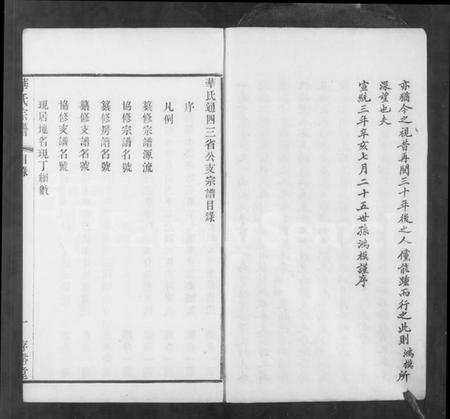 亦猶今之視昔再閱三十年後之人僅能踵而行之此則鴻模所
深望也夫
宣統三年辛亥七月二十五世孫鴻模謹序
華氏通四三省公支宗譜目錄
序
凡例
纂修宗譜源流
協修宗譜名號
纂修房譜名號
纂修支譜名號
協修支譜名號
現居地名現丁細數
華氏宗譜
目錄
一
存裕堂